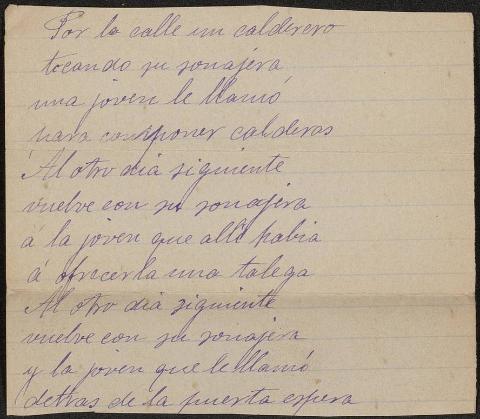 Por la calle un calderero
tocando su sonajera
una joven le llamó
para componer calderas
Al otro dia siguiente
vuelve con su sonajera
á la joven que alli habia
á ofrecerla una talega
Al otro dia siguiente
vuelve con su sonajera
y la joven que le llamó
detras de la puerta espera